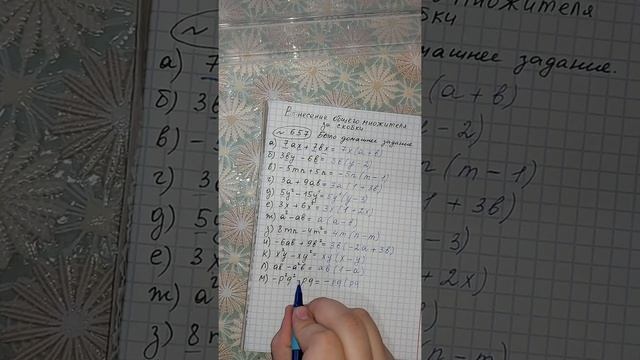 Вынесение общего множителя
за скобки
№ 657 Было домашнее задание.
а) 7ax + 7bx = 7x(a+b)
б) 3by - 6b = 3b(y-2)
в) -5mn + 5n = -5n(m-1)
г) 3a + 9ab = 3a(1+3b)
д) 5y² - 15y = 5y(y-3)
е) 3x + 6x² = 3x(1+2x)
ж) a² - ab = a(a-b)
з) 8mn - 4m² = 4m(
и) -6ab + 9b² = 3b(-2a+3b)
к) x²y - xy² = xy(x-y)
л) ab - a²b = ab(1-a)
м) -p²q² - pq = -pq(pq